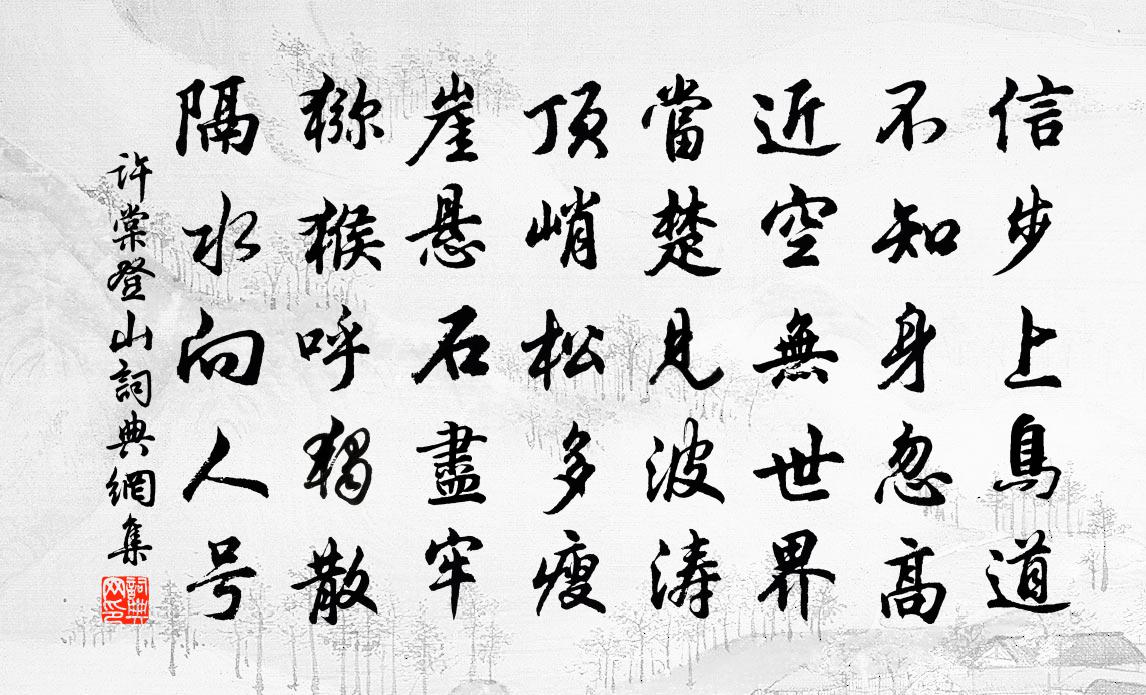 信步上鳥道
不知身忽高
近空無世界
當楚見波涛
頂峭松多瘦
崖悬石盡牢
猕猴呼獨散
隔水向人号
許棠登山詞典網集
詞典网印